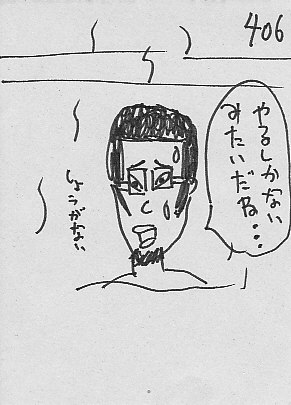 406
やるしかない
みたいだね・・・
しょうがない